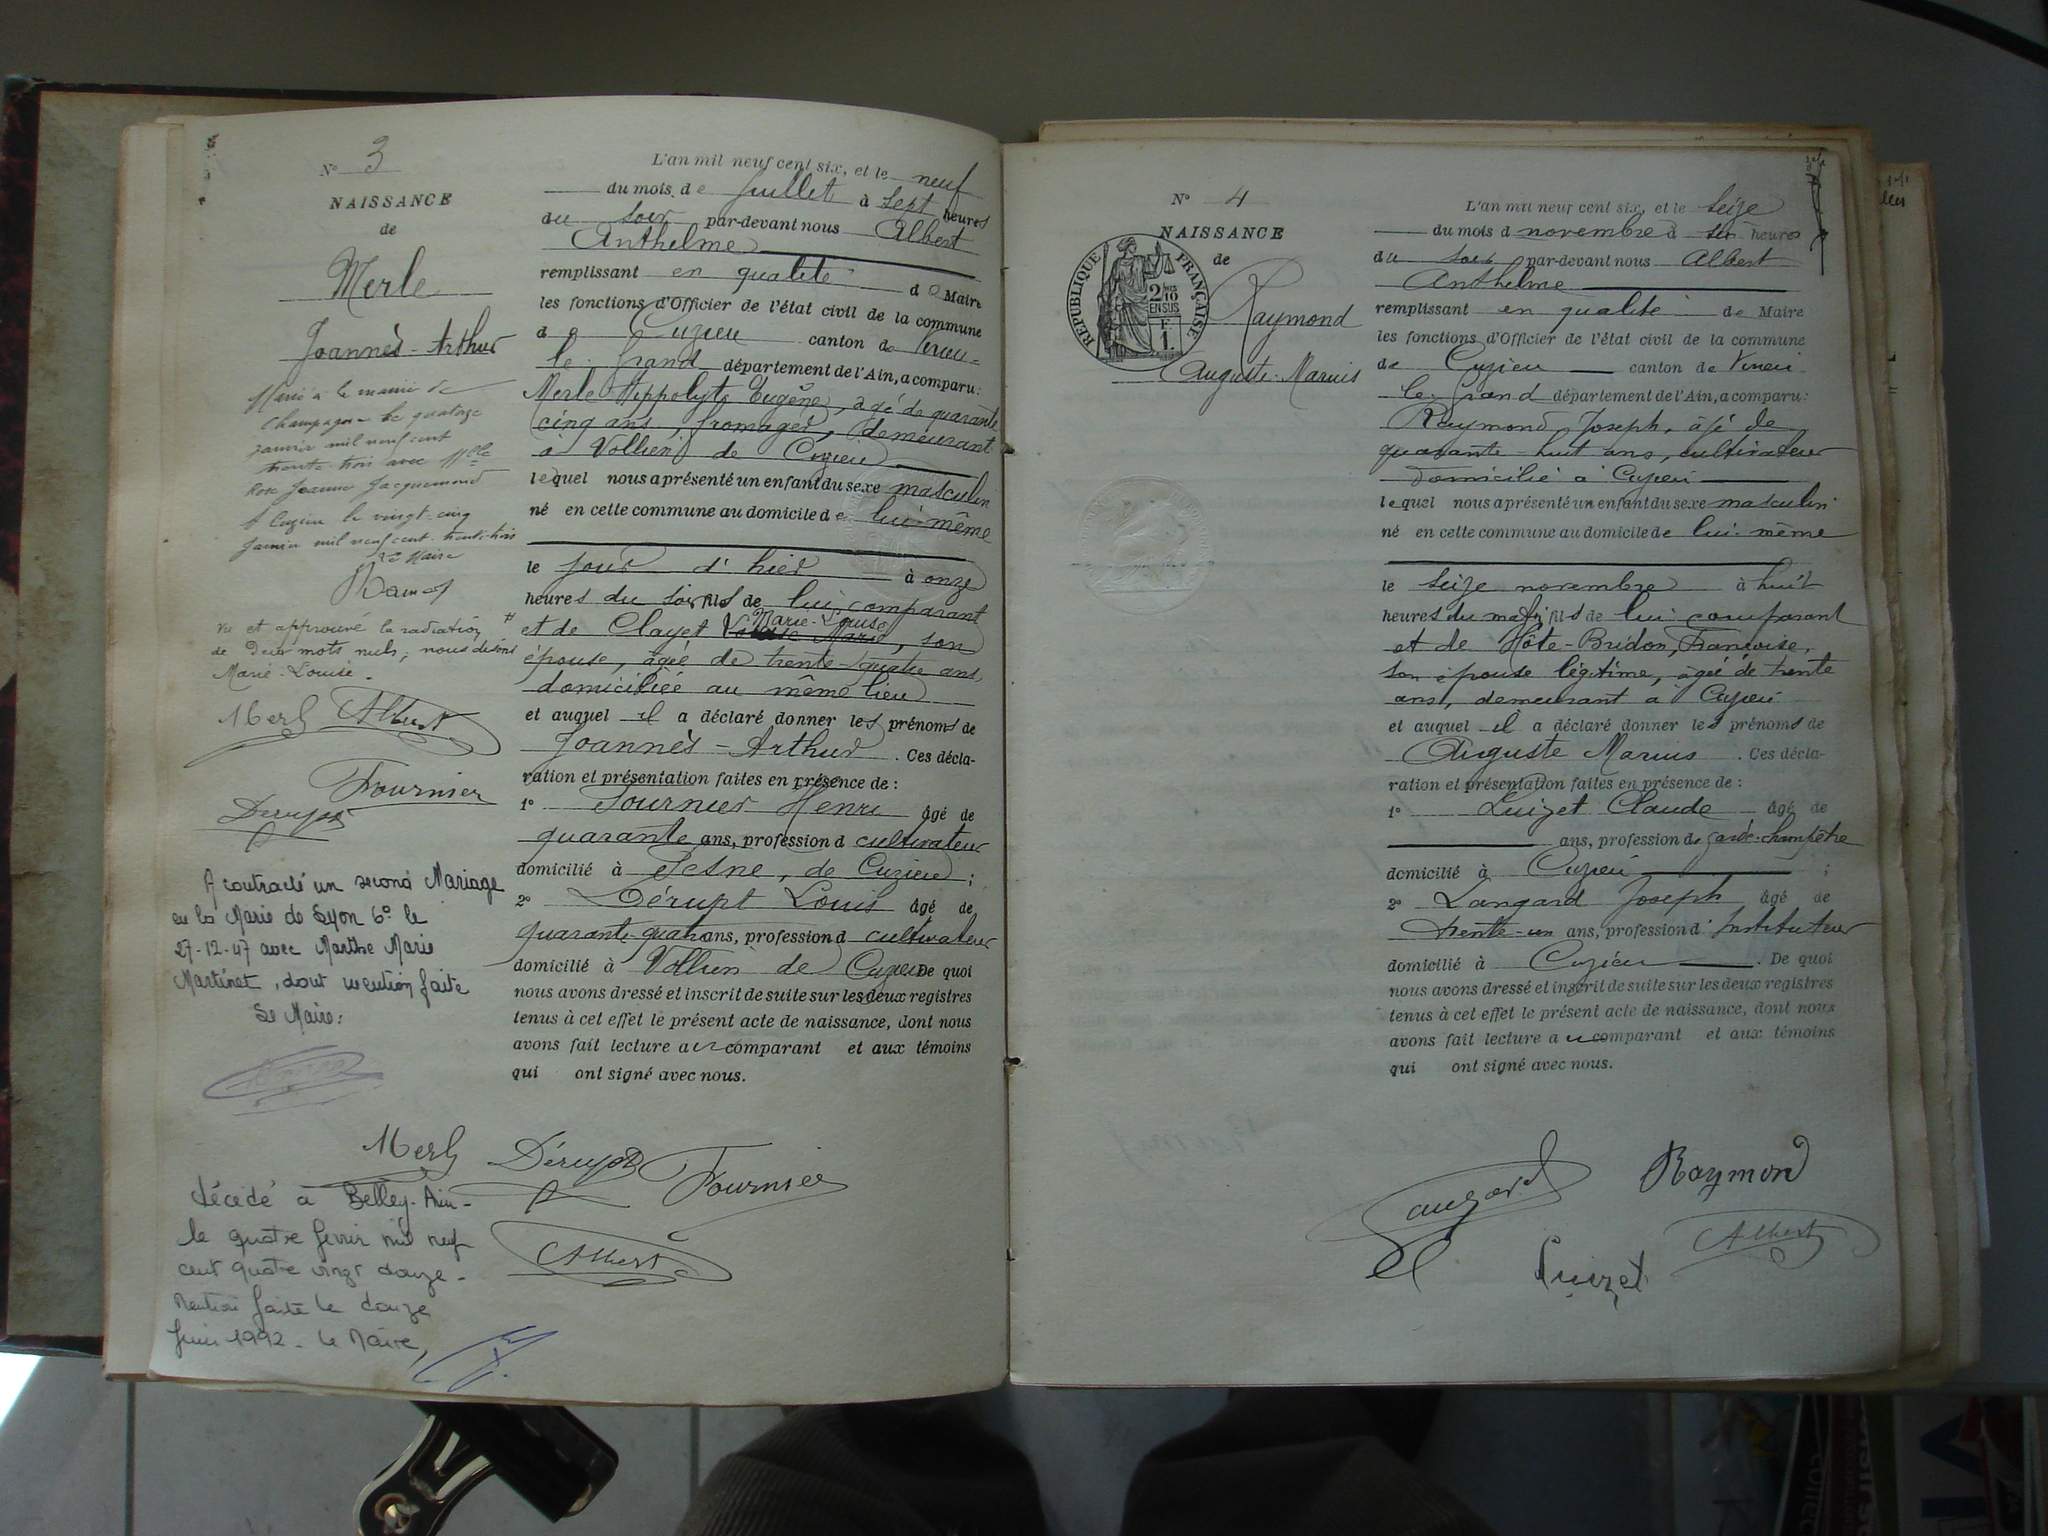 N° 3
NAISSANCE
de
Merle
Joannès-Arthur
Marié à la mairie de
Champagne le quatorze
janvier mil neuf cent
trente-trois avec Mlle
Rose Jeanne Jacquemond
A Cuzieu le vingt-cinq
janvier mil neuf cent trente-trois
Le Maire
Vu et approuvé la radiation #
de deux mots nuls, nous disons
Marie-Louise.
Merle Albert
Fournier
Dérupt
A contracté un second Mariage
en la Mairie de Lyon 6° le
27-12-47 avec Marthe Marie
Martinet, dont mention faite
Le Maire:
Décédé à Belley-Ain-
le quatre février mil neuf
cent quatre vingt douze.
Mention faite le douze
Juin 1992. Le Maire,
L'an mil neuf cent six, et le neuf
du mois de Juillet à sept heures
du soir par-devant nous Albert
Anthelme
remplissant en qualité de Maire
les fonctions d'Officier de l'état civil de la commune
de Cuzieu canton de Virieu-
le-Grand département de l'Ain, a comparu:
Merle Hippolyte Eugène, âgé de quarante
cinq ans, fromager, demeurant
à Vollien de Cuzieu
lequel nous a présenté un enfant du sexe masculin
né en cette commune au domicile de lui-même
le jour d'hier à onze
heures du soir fils de lui comparant
Marie-Louise
et de Clayet Marie, son
épouse, âgée de trente-quatre ans,
domiciliée au même lieu
et auquel il a déclaré donner les prénoms de
Joannès-Arthur. Ces décla-
ration et présentation faites en présence de:
1° Fournier Henri âgé de
quarante ans, profession d cultivateur
domicilié à Sesne, de Cuzieu;
2° Dérupt Louis âgé de
quarante-quatre ans, profession d cultivateur
domicilié à Vollien de Cuzieu. De quoi
nous avons dressé et inscrit de suite sur les deux registres
tenus à cet effet le présent acte de naissance, dont nous
avons fait lecture au comparant et aux témoins
qui ont signé avec nous.
Merle Dérupt Fournier
Albert
N° 4
NAISSANCE
de
Raymond
Auguste-Marius
RÉPUBLIQUE FRANÇAISE
2/10
EN SUS
F
1.
L'an mil neuf cent six, et le seize
du mois d novembre à six heures
du soir par-devant nous Albert
Anthelme
remplissant en qualité de Maire
les fonctions d'Officier de l'état civil de la commune
de Cuzieu canton de Virieu-
le-Grand département de l'Ain, a comparu:
Raymond Joseph, âgé de
quarante-huit ans, cultivateur
domicilié à Cuzieu
lequel nous a présenté un enfant du sexe masculin
né en cette commune au domicile de lui-même
le seize novembre à huit
heures du matin fils de lui comparant
et de Hôte-Bridon, Françoise,
son épouse légitime, âgée de trente
ans, demeurant à Cuzieu
et auquel il a déclaré donner les prénoms de
Auguste Marius. Ces décla-
ration et présentation faites en présence de:
1° Luizet Claude âgé de
ans, profession de garde-champêtre
domicilié à Cuzieu;
2° Langard Joseph âgé de
trente-un ans, profession d' Instituteur
domicilié à Cuzieu. De quoi
nous avons dressé et inscrit de suite sur les deux registres
tenus à cet effet le présent acte de naissance, dont nous
avons fait lecture au comparant et aux témoins
qui ont signé avec nous.
Langard Raymond
Luizet Albert